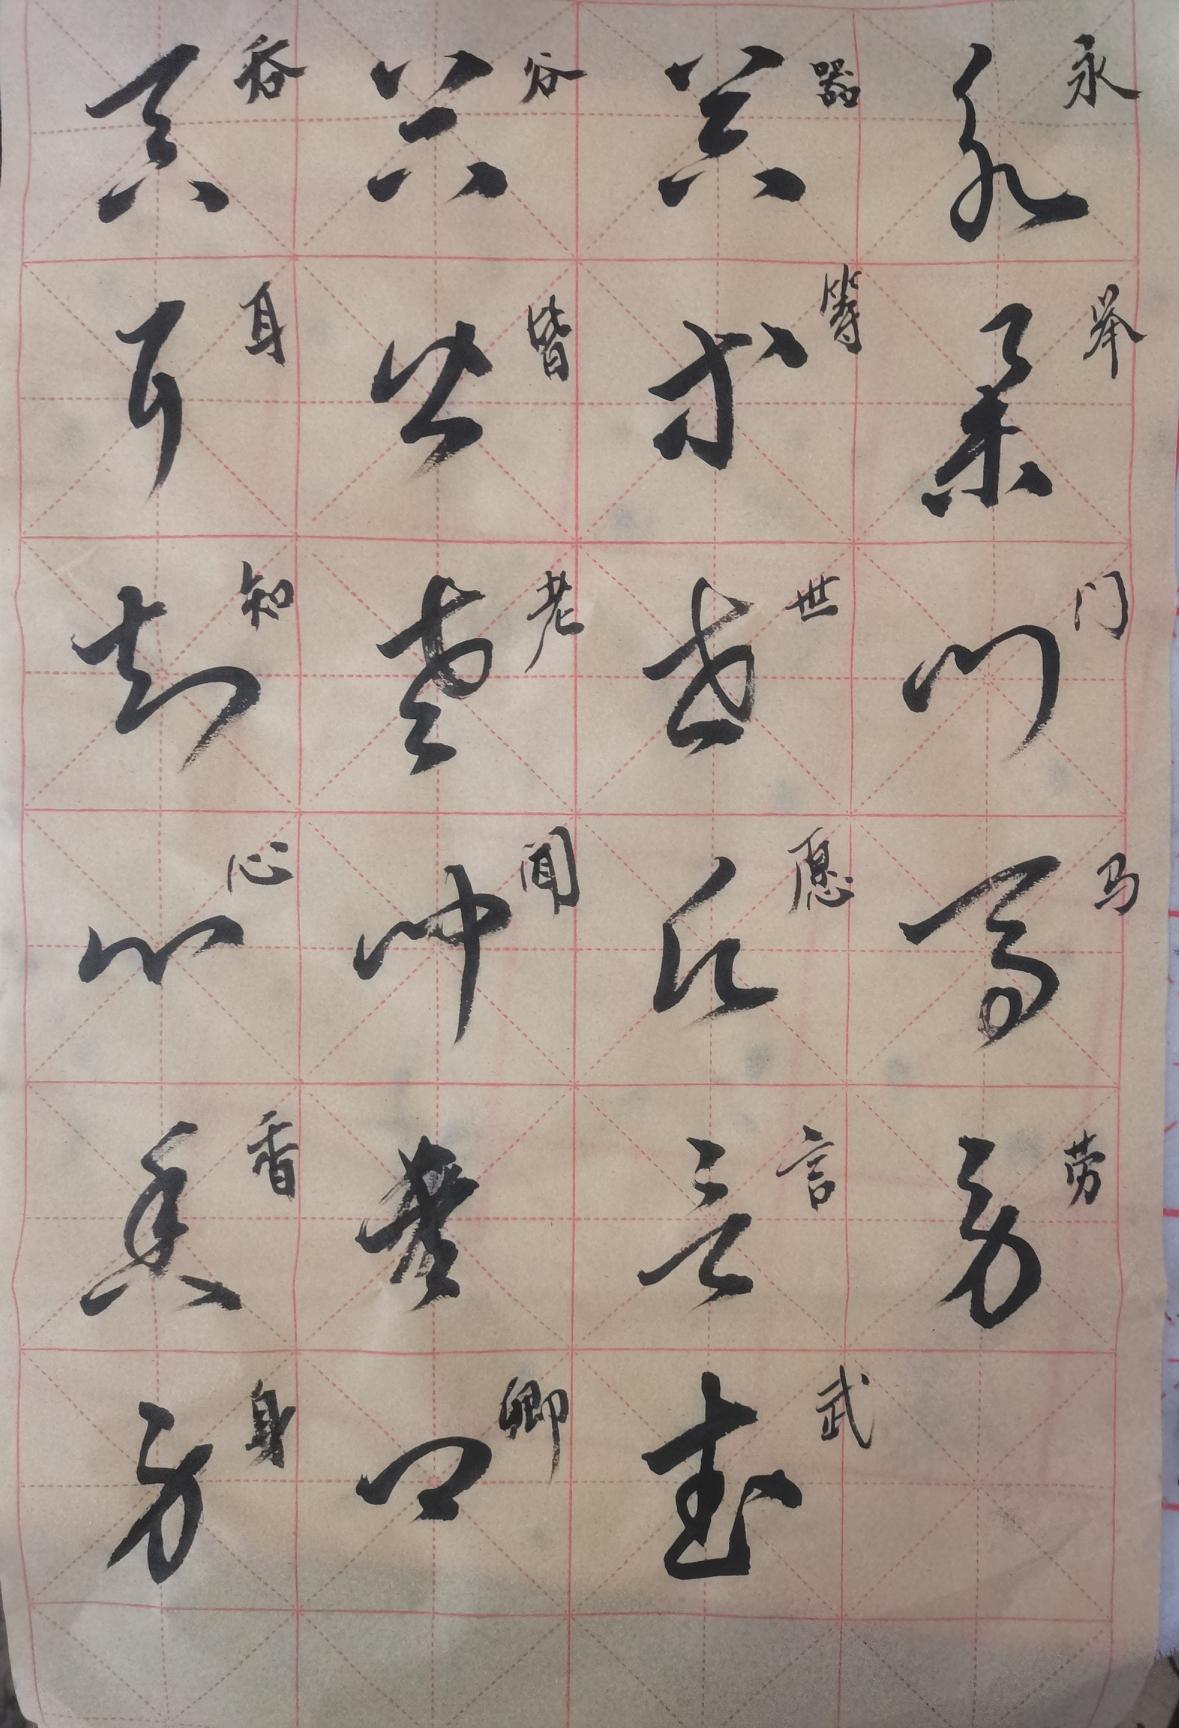 永
举
门
马
劳
器
等
世
愿
言
武
谷
皆
老
闻
卿
吞
耳
知
心
香
身